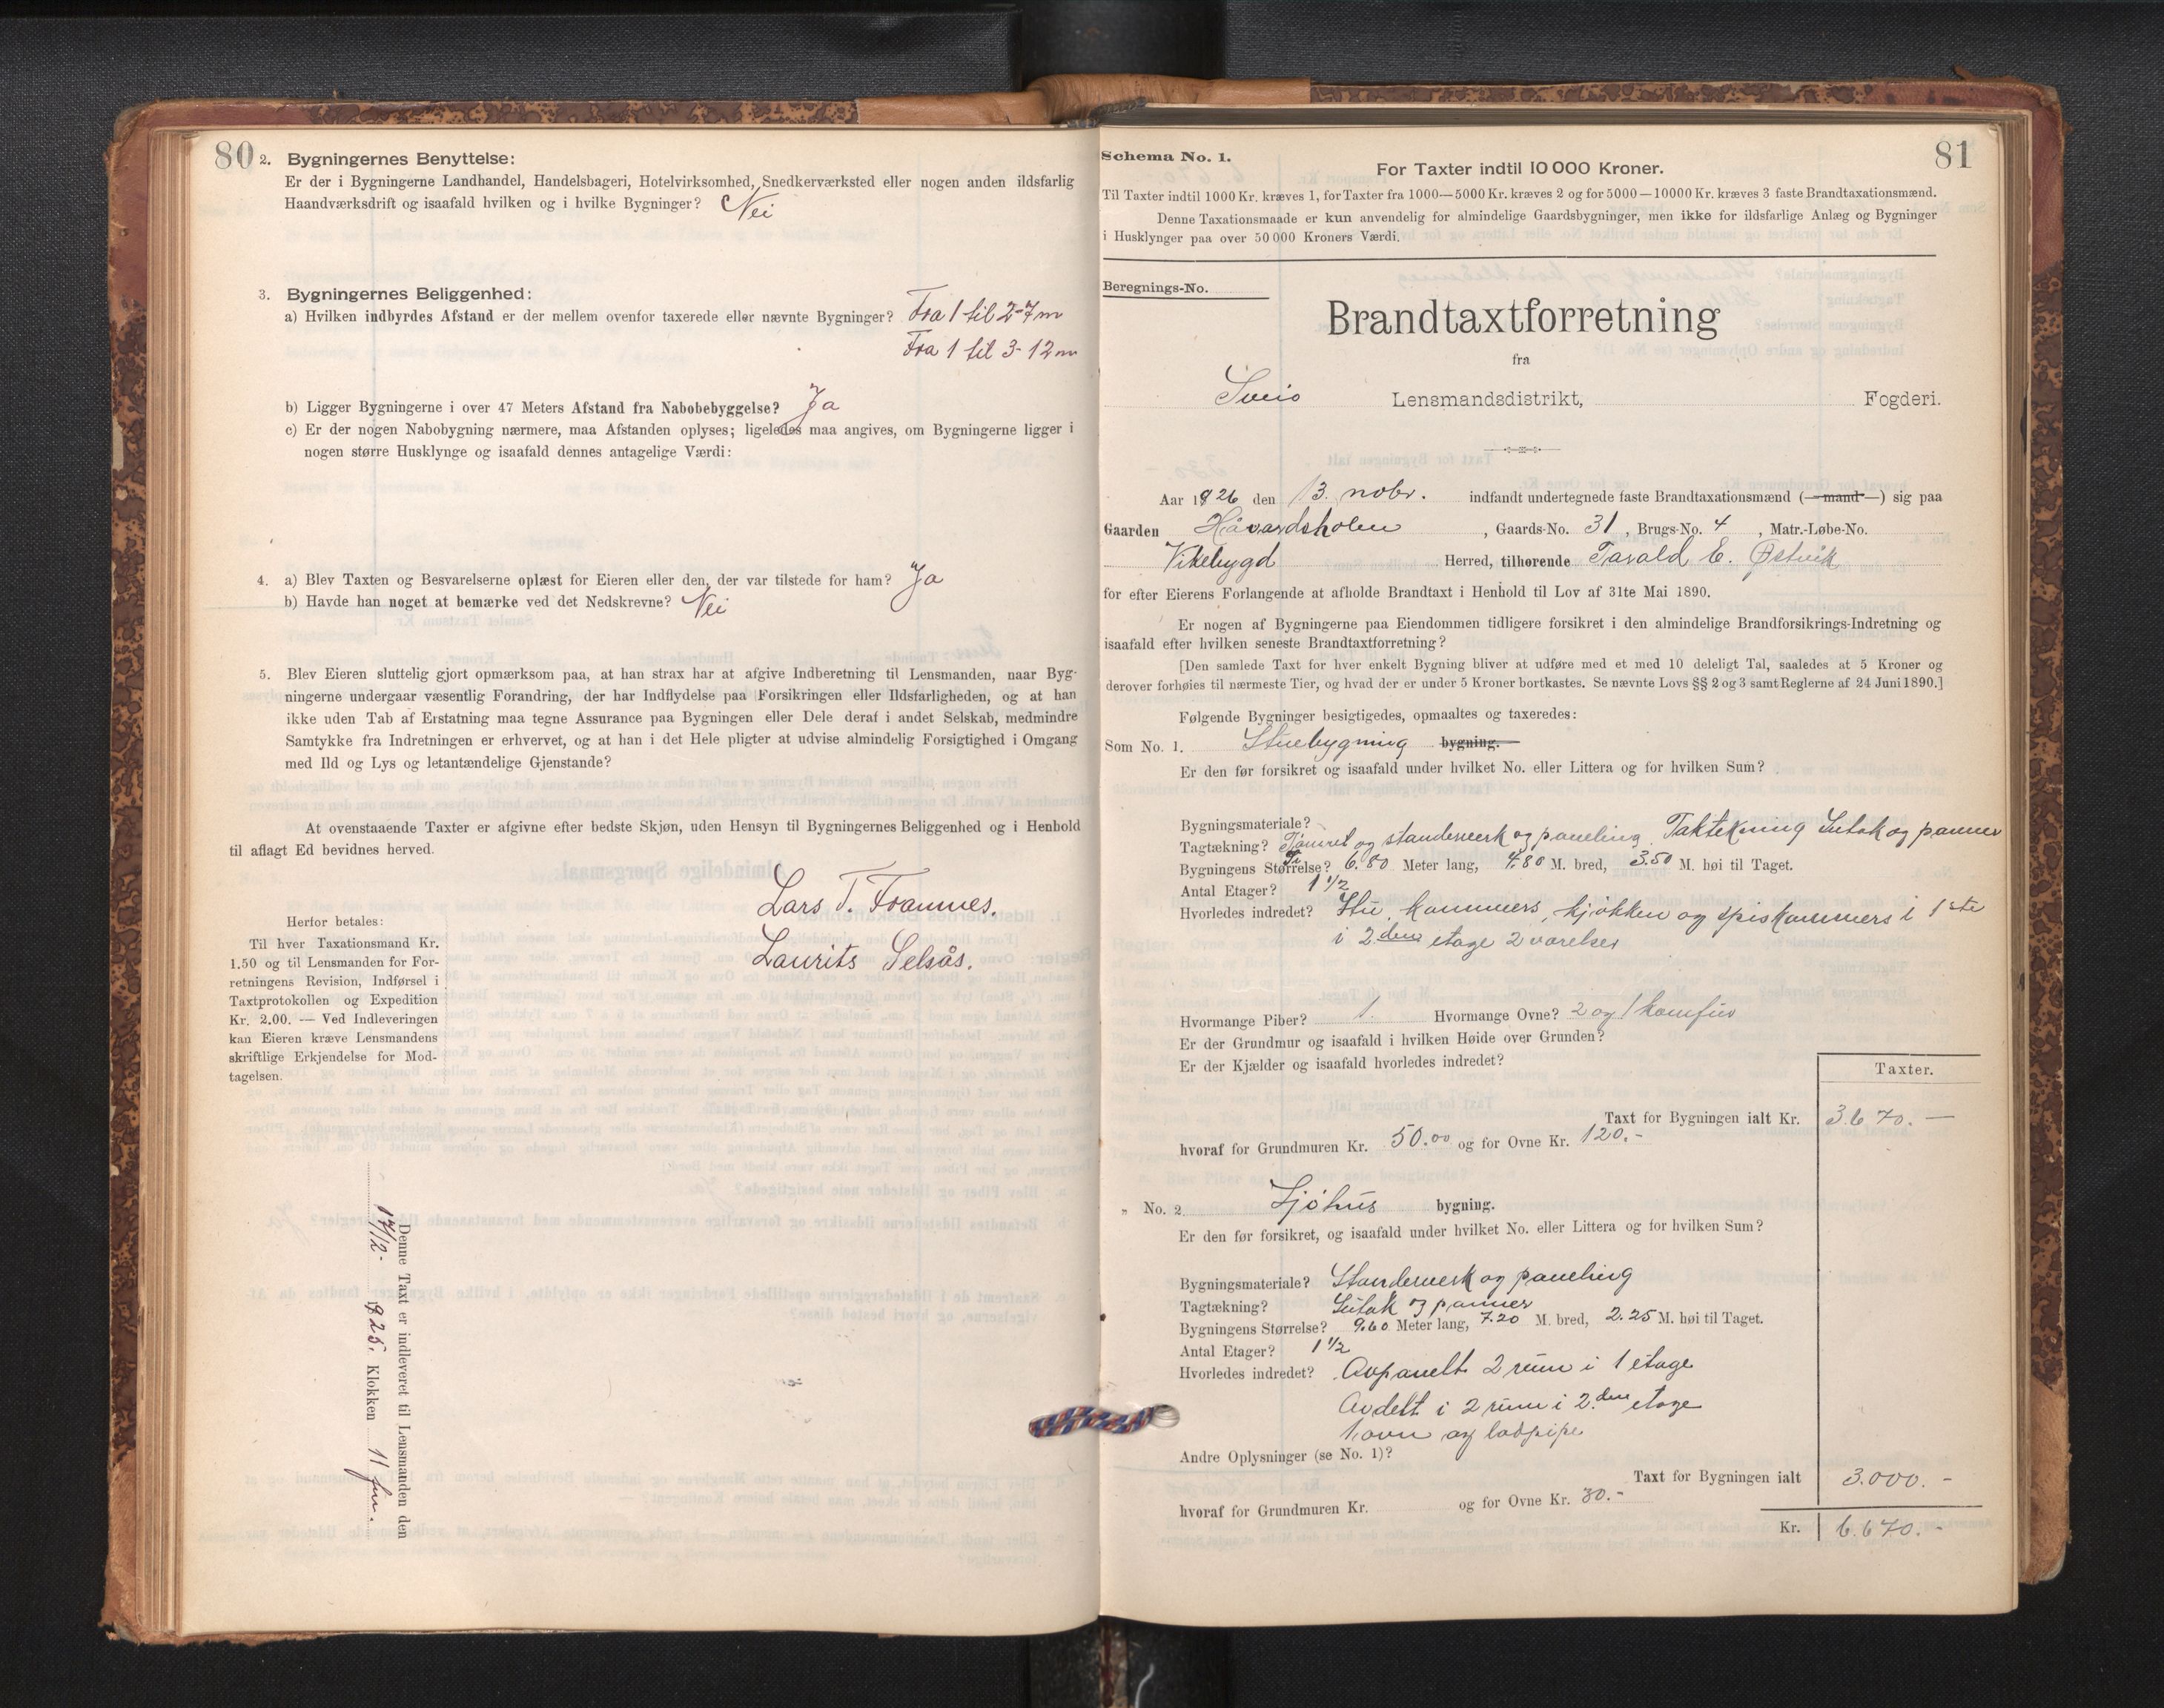 80
2. Bygningernes Benyttelse:
Er der i Bygningerne Landhandel, Handelsbageri, Hotelvirksomhed, Snedkerværksted eller nogen anden ildsfarlig
Haandværksdrift og isaafald hvilken og i hvilke Bygninger? Nei
3. Bygningernes Beliggenhed:
a) Hvilken indbyrdes Afstand er der mellem ovenfor taxerede eller nævnte Bygninger? Fra 1 til 2-7 m
Fra 1 til 3-12 m
b) Ligger Bygningerne i over 47 Meters Afstand fra Nabobebyggelse? Ja
c) Er der nogen Nabobygning nærmere, maa Afstanden oplyses; ligeledes maa angives, om Bygningerne ligger i
nogen større Husklynge og isaafald dennes antagelige Værdi:
4. a) Blev Taxten og Besvarelserne oplæst for Eieren eller den, der var tilstede for ham? Ja
b) Havde han noget at bemærke ved det Nedskrevne? Nei
5. Blev Eieren sluttelig gjort opmærksom paa, at han strax har at afgive Indberetning til Lensmanden, naar Byg-
ningerne undergaar væsentlig Forandring, der har Indflydelse paa Forsikringen eller Ildsfarligheden, og at han
ikke uden Tab af Erstatning maa tegne Assurance paa Bygningen eller Dele deraf i andet Selskab, medmindre
Samtykke fra Indretningen er erhvervet, og at han i det Hele pligter at udvise almindelig Forsigtighed i Omgang
med Ild og Lys og letantændelige Gjenstande?
At ovenstaaende Taxter er afgivne efter bedste Skjøn, uden Hensyn til Bygningernes Beliggenhed og i Henhold
til aflagt Ed bevidnes herved.
Lars T. Framnes.
Laurits Selsås.
Herfor betales:
Til hver Taxationsmand Kr.
1.50 og til Lensmanden for For-
retningens Revision, Indførsel i
Taxtprotokollen og Expedition
Kr. 2.00. — Ved Indleveringen
kan Eieren kræve Lensmandens
skriftlige Erkjendelse for Mod-
tagelsen.
Denne Taxt er indleveret til Lensmanden den
17/12- 1925, Klokken 11 fm.
81
Schema No. 1.
For Taxter indtil 10 000 Kroner.
Til Taxter indtil 1000 Kr. kræves 1, for Taxter fra 1000—5000 Kr. kræves 2 og for 5000—10000 Kr. kræves 3 faste Brandtaxationsmænd.
Denne Taxationsmaade er kun anvendelig for almindelige Gaardsbygninger, men ikke for ildsfarlige Anlæg og Bygninger
i Husklynger paa over 50 000 Kroners Værdi.
Beregnings-No.
Brandtaxtforretning
fra
Sveio Lensmandsdistrikt, Fogderi.
Aar 1926 den 13. nobr. indfandt undertegnede faste Brandtaxationsmænd (—mand—) sig paa
Gaarden Håvardsholen, Gaards-No. 31, Brugs-No. 4, Matr.-Løbe-No.
Vikebygd Herred, tilhørende Tarald E. Østvik
for efter Eierens Forlangende at afholde Brandtaxt i Henhold til Lov af 31te Mai 1890.
Er nogen af Bygningerne paa Eiendommen tidligere forsikret i den almindelige Brandforsikrings-Indretning og
isaafald efter hvilken seneste Brandtaxtforretning?
[Den samlede Taxt for hver enkelt Bygning bliver at udføre med et med 10 deleligt Tal, saaledes at 5 Kroner og
derover forhøies til nærmeste Tier, og hvad der er under 5 Kroner bortkastes. Se nævnte Lovs §§ 2 og 3 samt Reglerne af 24 Juni 1890.]
Følgende Bygninger besigtigedes, opmaaltes og taxeredes:
Som No. 1. Stuebygning bygning.
Er den før forsikret og isaafald under hvilket No. eller Littera og for hvilken Sum?
Bygningsmateriale?
Tagtækning? Tømret og standverk og paneling. Taktekning Sutak og panner
Bygningens Størrelse? 6.80 Meter lang, 4.80 M. bred, 3.50 M. høi til Taget.
Antal Etager? 1 1/2
Hvorledes indret? Stu, kammers, kjøkken og spiskammers i 1ste
i 2den etage 2 værelser
Hvormange Piber? 1. Hvormange Ovne? 2 og 1 komfur
Er der Grundmur og isaafald i hvilken Høide over Grunden?
Er der Kjælder og isaafald hvorledes indredet?
Taxter.
Taxt for Bygningen ialt Kr. 3.670.—
hvoraf for Grundmuren Kr. 50.00 og for Ovne Kr. 120.-
„ No. 2. Sjøhus bygning.
Er den før forsikret, og isaafald under hvilket No. eller Littera og for hvilken Sum?
Bygningsmateriale? Standverk og paneling
Tagtækning? Sutak og panner
Bygningens Størrelse? 9.60 Meter lang, 7.20 M. bred, 2.25 M. høi til Taget.
Antal Etager? 1 1/2
Hvorledes indredet? Avpanelt 2 rum i 1 etage
Avdelt i 2 rum i 2.den etage
1 ovn og
Andre Oplysninger (se No. 1)?
Taxt for Bygningen ialt 3.000.-
hvoraf for Grundmuren Kr. og for Ovne Kr. 30.-
Kr. 6.670.-